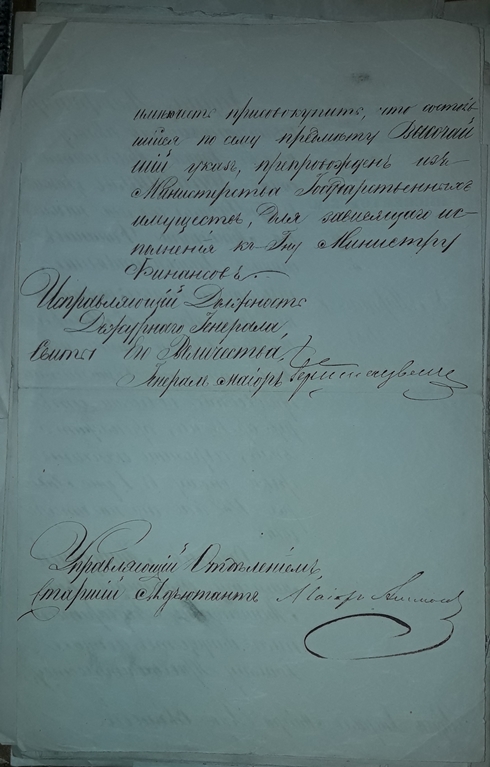 имѣюсть присовокупить, что состояв
шійся по сему предмету Высочай
шій указъ, препровожденъ изъ
Министерства Государственныхъ
имуществъ, для зависящаго ис-
полненія къ Гну Министру
Финансовъ.
Исправляющій Должность
Дежурнаго Генерала,
Свиты Его Величества,
Генералъ маіоръ
Управляющій Отдѣленіемъ
Старшій Адъютантъ Маіоръ